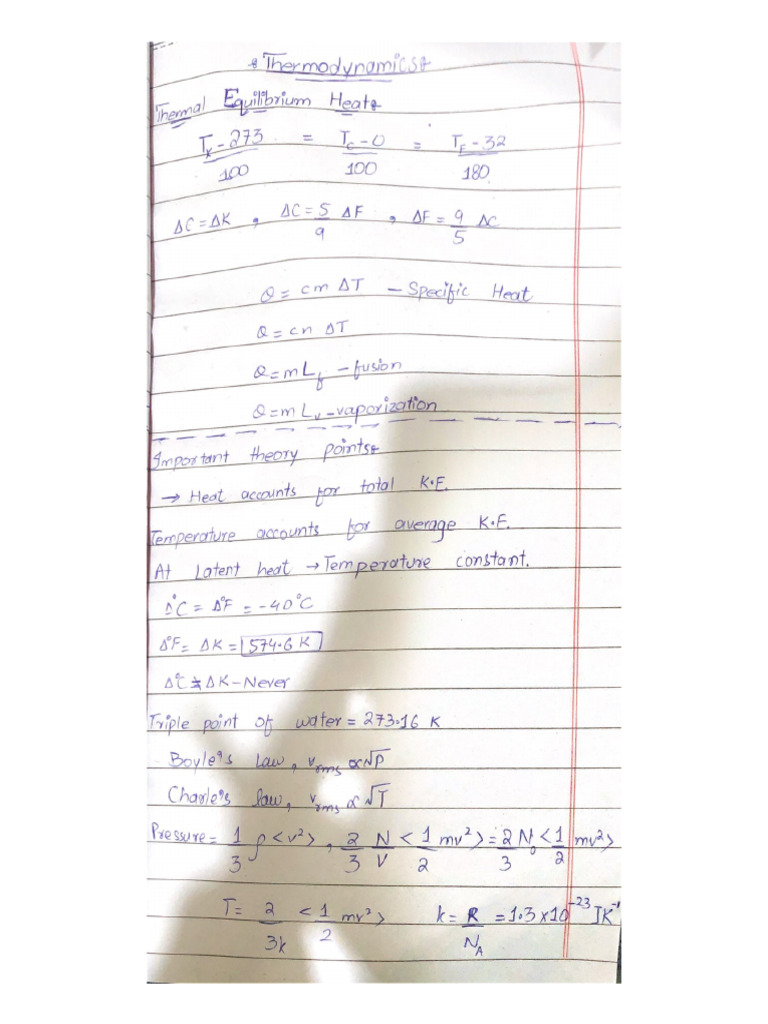 Thermodynamics:
Thermal Equilibrium Heat:
T_K - 273 / 100 = T_C - 0 / 100 = T_F - 32 / 180
ΔC = ΔK , ΔC = 5/9 ΔF , ΔF = 9/5 ΔC
Q = cm ΔT - Specific Heat
Q = cn ΔT
Q = mL_f - fusion
Q = mL_v - vaporization
Important theory points:
→ Heat accounts for total K.E.
Temperature accounts for average K.E.
At Latent heat → Temperature constant.
Δ°C = Δ°F = -40°C
Δ°F = ΔK = 574.6 K
Δ°C ≠ ΔK - Never
Triple point of water = 273.16 K
Boyle's law, v_rms ∝ √P
Charle's law, v_rms ∝ √T
Pressure = 1/3 ρ<v²>, 2/3 N/V <1/2 mv²> = 2/3 N_0 <1/2 mv²>
T = 2/3k <1/2 mv²> k = R/N_A = 1.3 x 10^-23 JK^-1